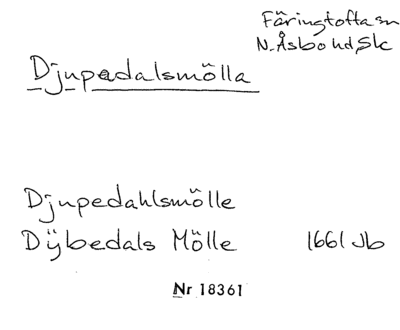 Färingtofta sn
N. Åsbo hd, Sk
Djupadalsmölla
Djupedahlsmölle
Dÿbedals Mölle 1661 Jb
Nr 18361